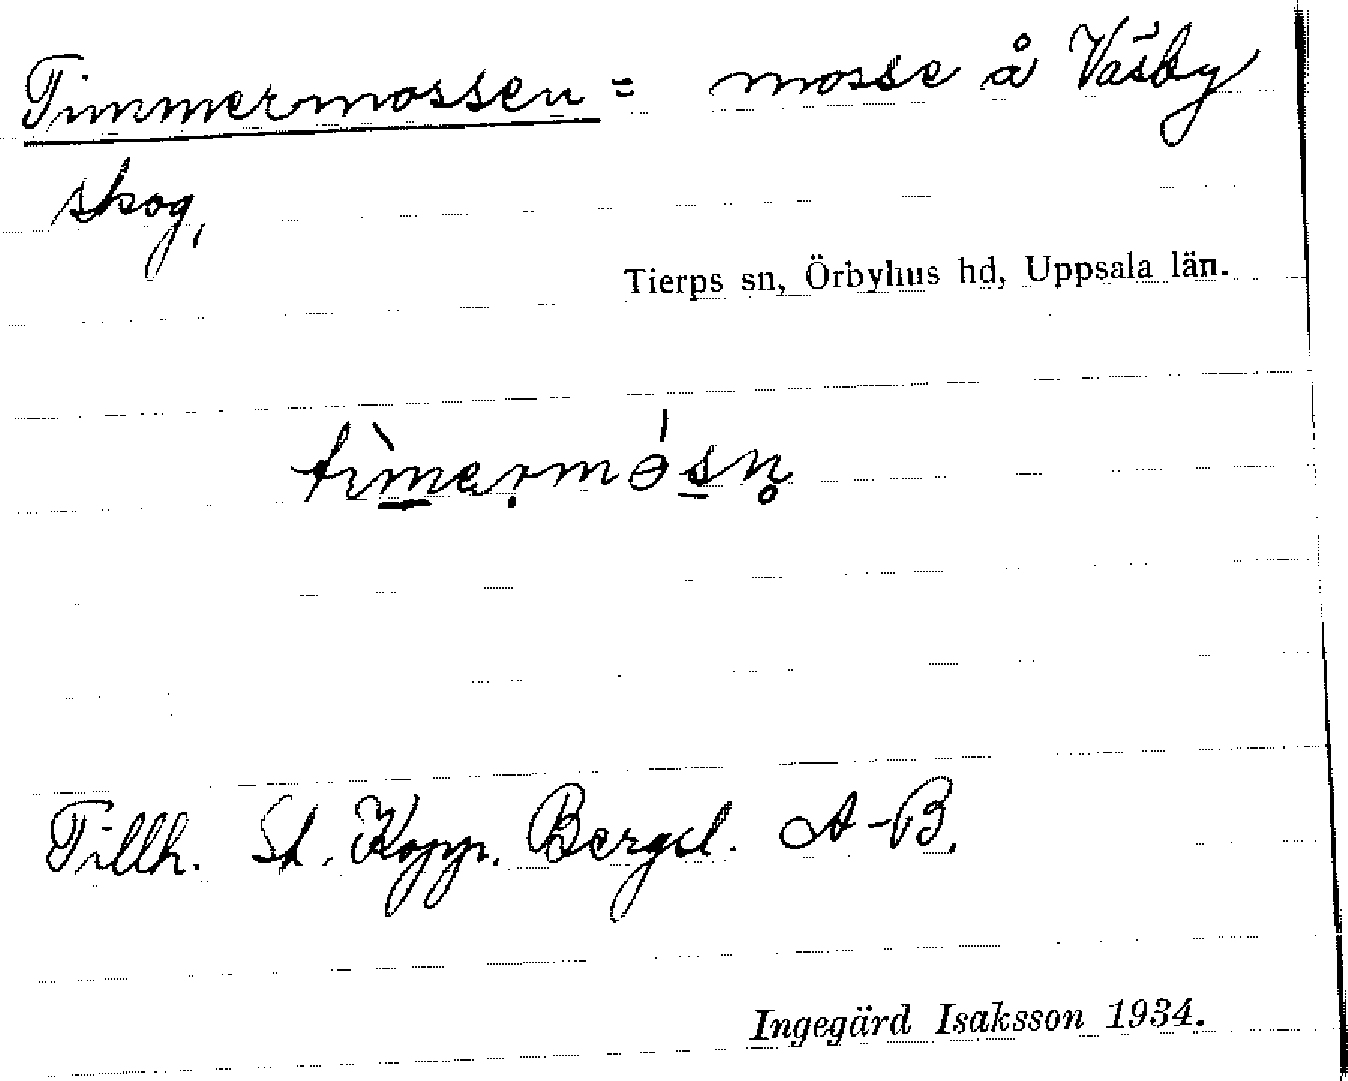 Timmermossen = mosse å Väsby
skog,
Tierps sn, Örbyhus hd, Uppsala län.
Tillh. St. Kopp. Bergsl. A-B.
Ingegärd Isaksson 1934.